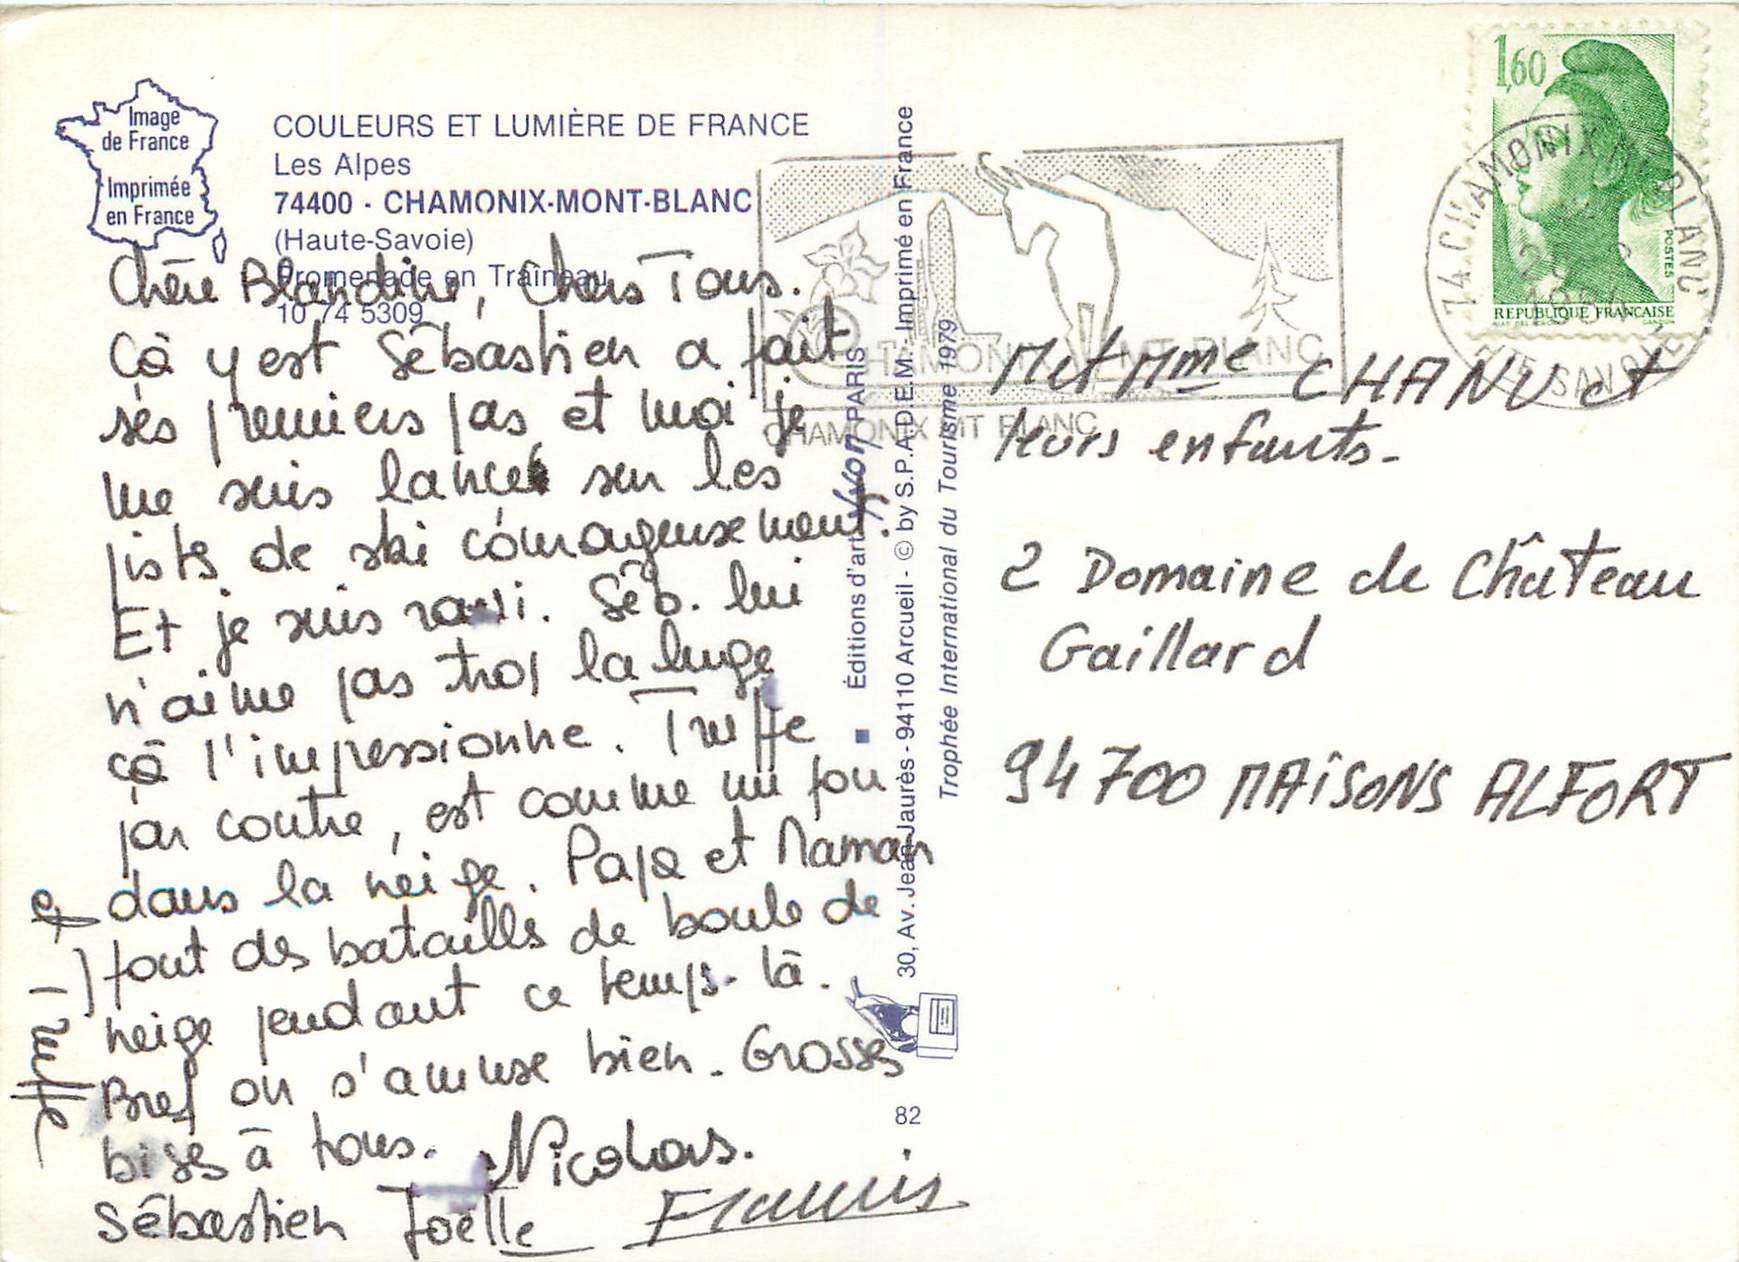 Image
de France
Imprimée
en France
COULEURS ET LUMIÈRE DE FRANCE
Les Alpes
74400 - CHAMONIX-MONT-BLANC
(Haute-Savoie)
Promenade en Traîneau
10 74 5309
Chère Blandine, Chers Tous.
Cà y est Sébastien a fait
ses premiers pas et moi je
me suis lancé sur les
pistes de ski courageusement.
Et je suis ravi. Séb. lui
n'aime pas trop la luge
çà l'impressionne. Truffe
par contre, est comme un fou
dans la neige. Papa et Maman
font des batailles de boule de
neige pendant ce temps-là.
Bref on s'amuse bien. Grosses
bises à tous. Nicolas.
Sébastien Joëlle Francis
et Truffe
Éditions d'art Yvon PARIS
30, Av. Jean-Jaurès - 94110 Arcueil - © by S.P.A.D.E.M. - Imprimé en France
Trophée International du Tourisme 1979
82
CHAMONIX MT BLANC
CHAMONIX MT BLANC
1,60
POSTES
REPUBLIQUE FRANÇAISE
GANDON
74 CHAMONIX MT BLANC
HTE SAVOIE
M et Mme CHANU et
leurs enfants.
2 Domaine de Château
Gaillard
94700 MAiSONS ALFORT